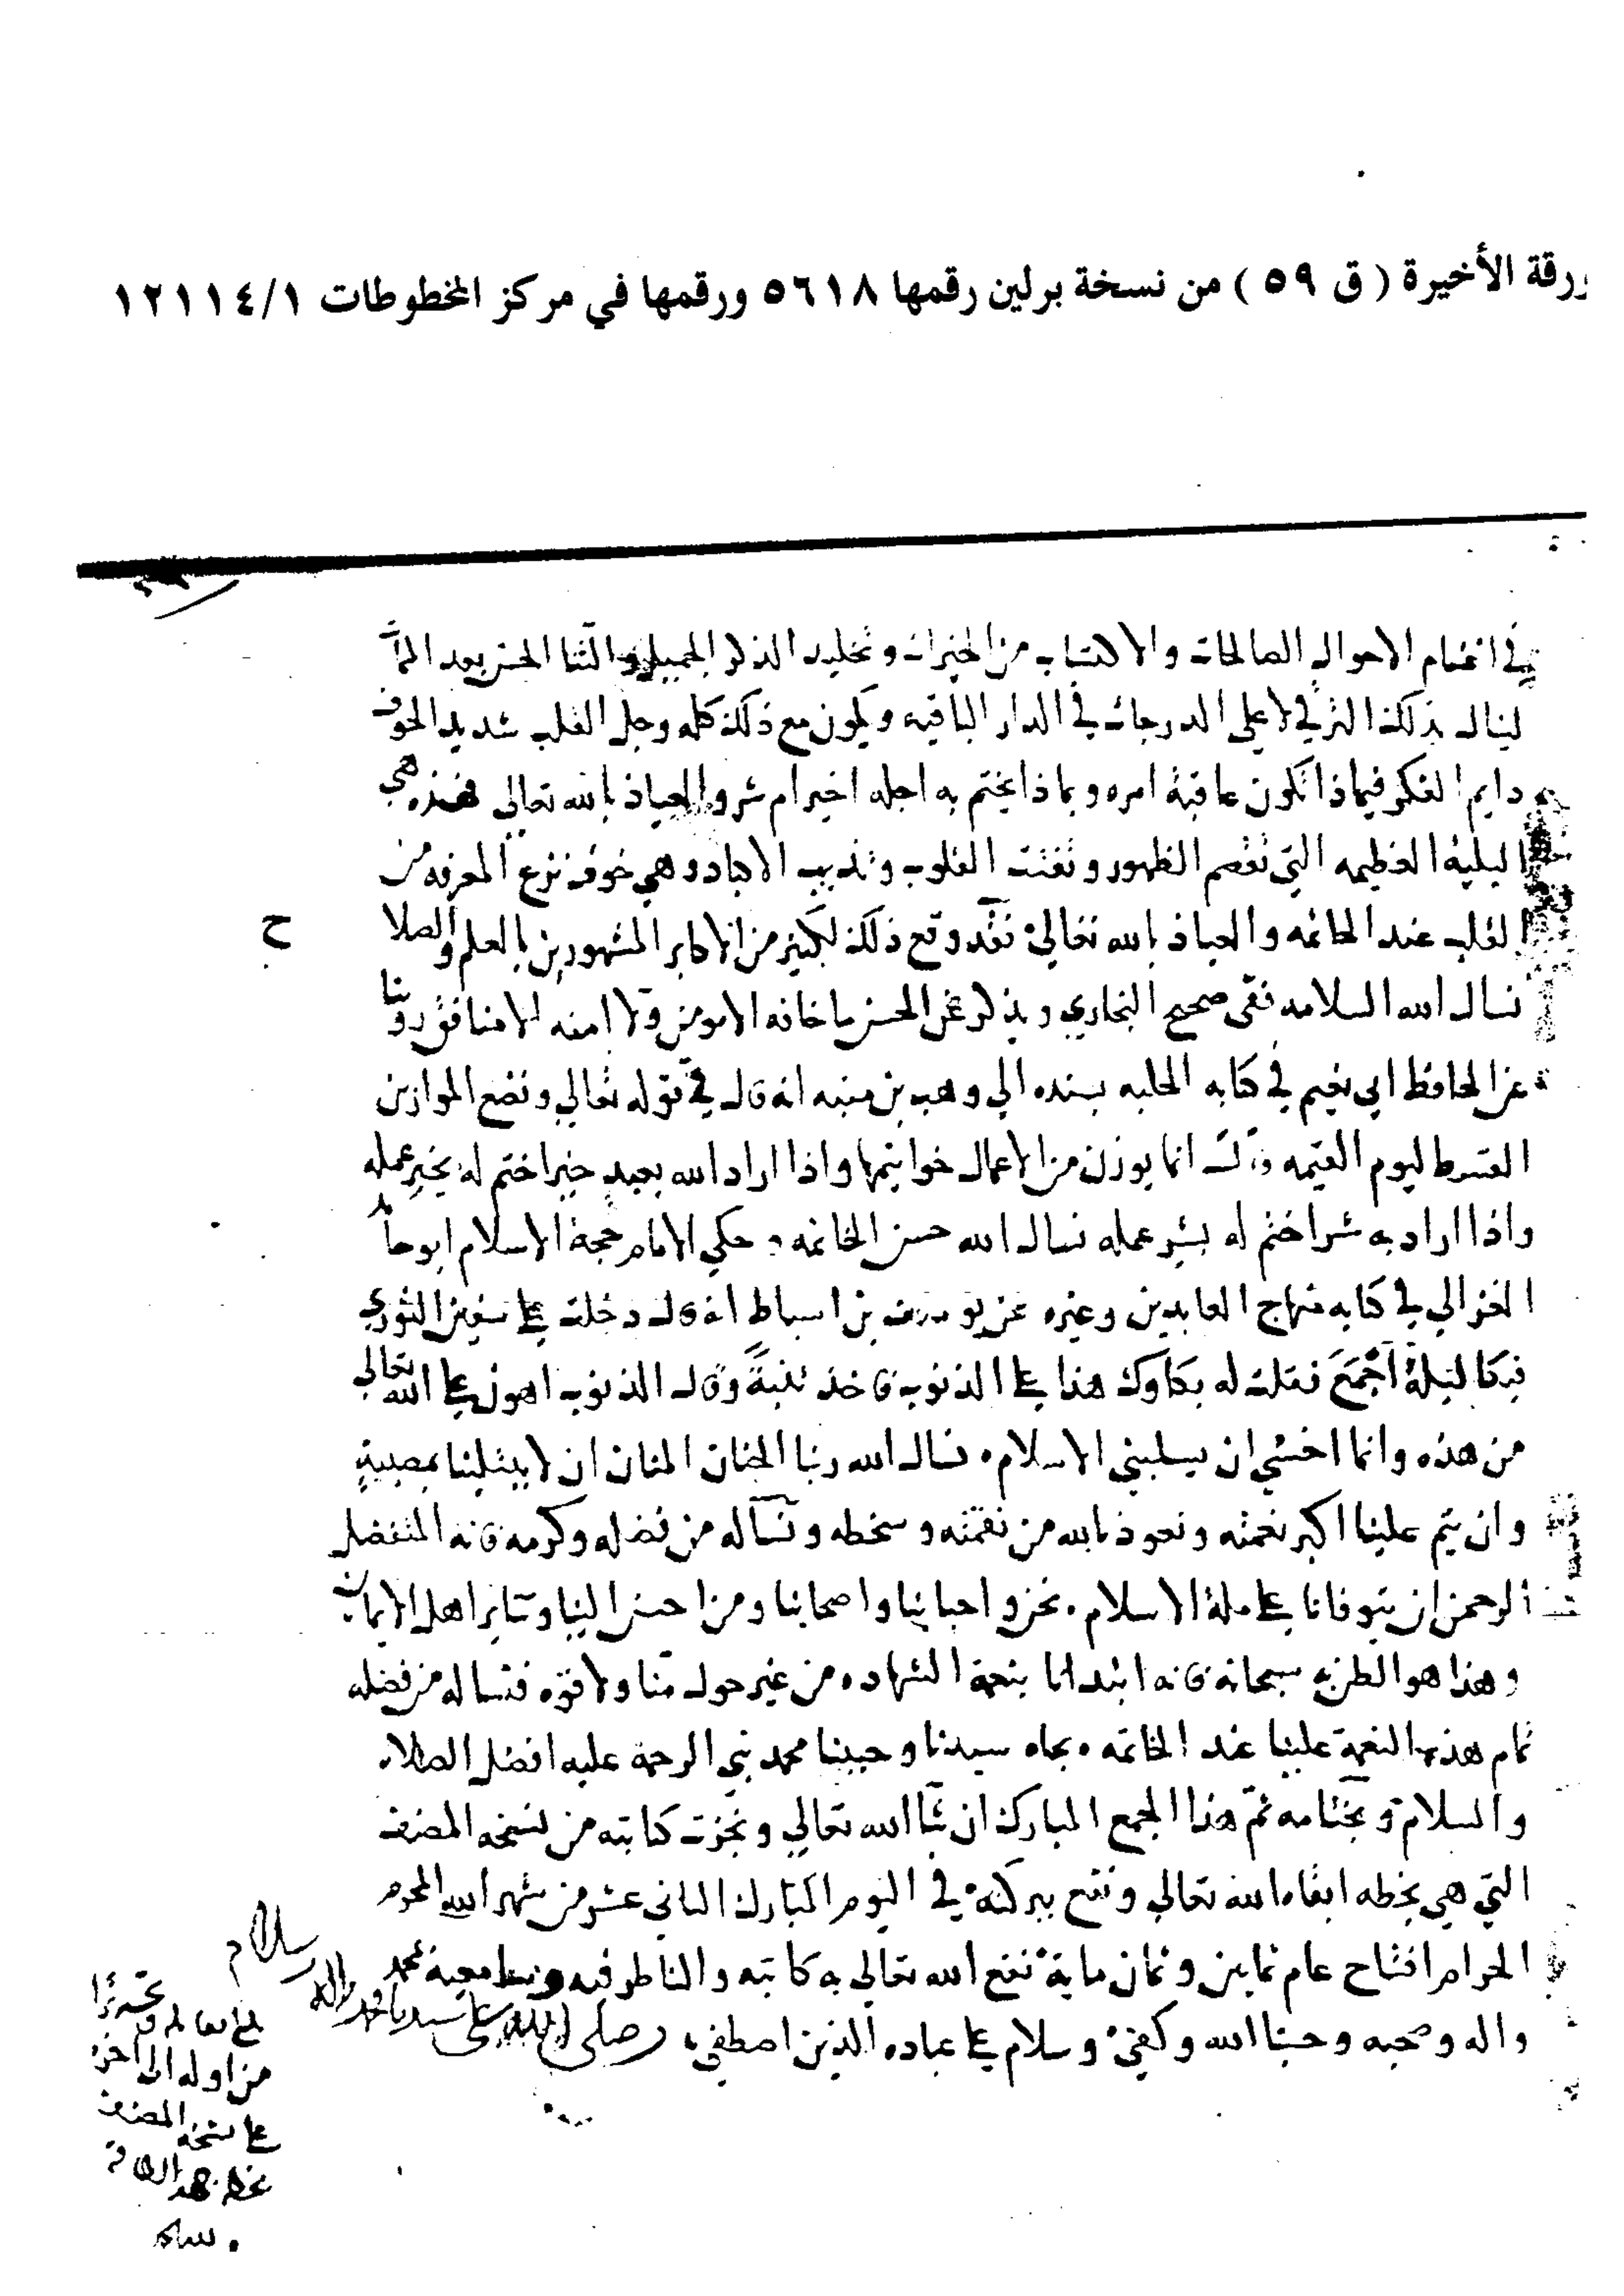 ورقة الأخيرة ( ق ٥٩ ) من نسخة برلين رقمها ٥٦١٨ ورقمها في مركز المخطوطات ١٢١١٤/١
في اغتنام الاحوال الصالحات والاكتساب من الخيرات وتخليد الذكر الجميل والثنا الحسن بعد المما
لينال بذلك الترقي لاعلى الدرجات في الدار الباقيه ويكون مع ذلك كله وجل القلب شديد الخوف
دايم الفكر فيماذا تكون عاقبة امره وبماذا يختم به اجله اخير ام شر والعياذ بالله تعالى فهذه هي
البلية العظيمه التي تقصم الظهور وتفتت القلوب وتذيب الاكباد وهي خوف نزع المعرفه من
القلب عند الخاتمه والعياذ بالله تعالى فقد وقع ذلك لكثير من الاكابر المشهورين بالعلم والصلا
ح
نسال الله السلامه ففي صحيح البخاري ويذكر عن الحسن ما خافه الا مومن ولا امنه الا منافق روينا
عن الحافظ ابي نعيم في كتابه الحليه بسنده الي وهب بن منبه انه قال في قوله تعالي ونضع الموازين
القسط ليوم القيمه قال انما يوزن من الاعمال خواتيمها واذا اراد الله بعبد خيرا ختم له بخير عمله
واذا اراد به شرا ختم له بشر عمله نسال الله حسن الخاتمه وحكي الامام حجة الاسلام ابو حامد
الغزالي في كتابه منهاج العابدين وغيره عن يوسف بن اسباط انه قال دخلت على سفين الثوري
فبكا ليلة اجمع فقلت له بكاوك هذا على الذنوب فاخذ تبنة وقال الذنوب اهون على الله تعالي
من هذه وانما اخشي ان يسلبني الاسلام نسال الله ربنا الحنان المنان ان لا يبتلينا بمصيبة
وان يتم علينا اكبر نعمته ونعوذ بالله من نقمته وسخطه ونساله من فضله وكرمه فانه المتفضل
الرحمن ان يتوفانا على ملة الاسلام نحن واحبابنا واصحابنا ومن احسن الينا وساير اهل الايمان
وهذا هو الظن به سبحانه فانه ابتدانا بنعمة الشهاده من غير حول منا ولا قوه فنساله من فضله
تمام هذه النعمة علينا عند الخاتمه بجاه سيدنا وحبيبنا محمد نبي الرحمة عليه افضل الصلاه
والسلام وبختامه تم هذا الجمع المبارك ان شا الله تعالي ونجزت كتابته من نسخه المصنف
التي هي بخطه ابقاه الله تعالي ونفع ببركته في اليوم المبارك الثاني عشر من شهر الله المحرم
الحرام افتتاح عام ثمانين وثمان ماية نفع الله تعالي به كاتبه والناظر فيه محمد
واله وصحبه وحسبنا الله وكفى وسلام على عباده الذين اصطفى وصلى الله على سيدنا محمد واله وسلم
بلغ مقابلة وتحريرا
من اوله الى اخره
على نسخة المصنف